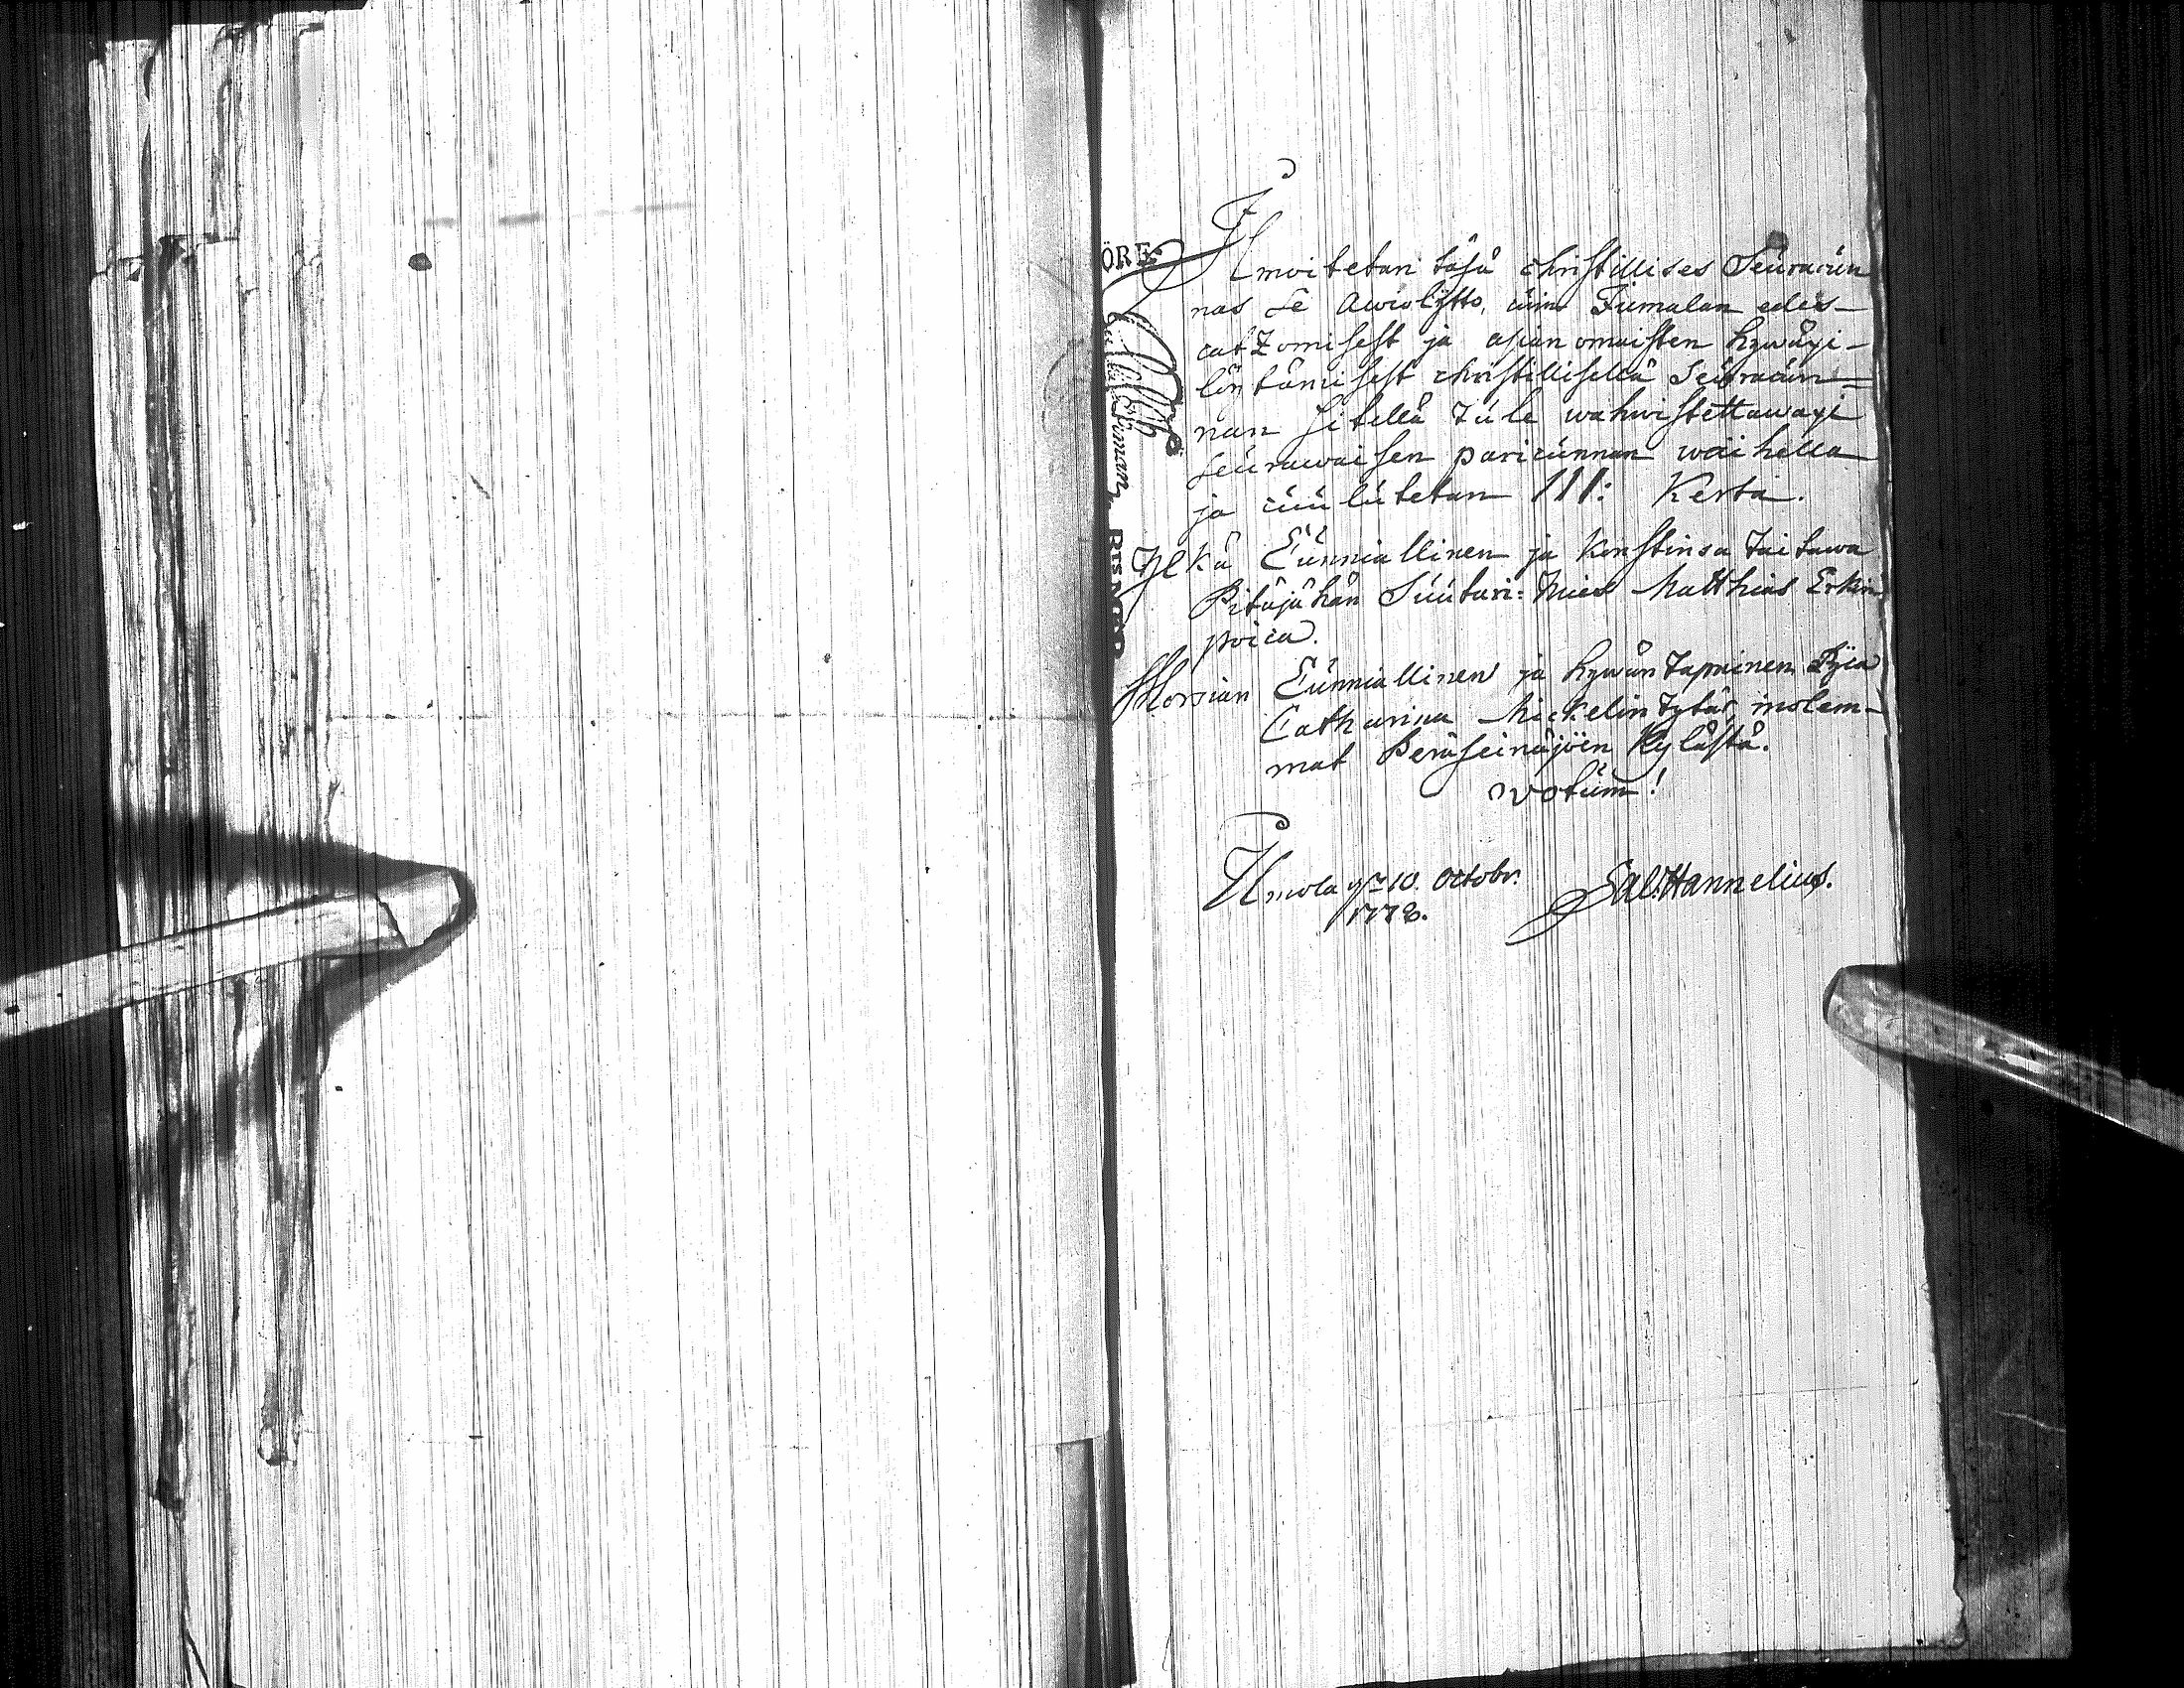 Ilmoitetan täsä christillises Seuracun
nas se Awiolijtto, cuin Jumalan edes-
catzomisest ja asian omaisten hywäxi-
löytämisest christillisellä Seuracun-
nan sitellä tule wahwistettawaxi
seurawaisen paricunnan wäihellä
ja cuulutetan III: Kerta.
Yl kä Cunniallinen ja Konstinsa taitawa
Pitäjähän Suutari-Mies Matthias Erkin
poica.
Morsian Cunniallinen ja hywän tapainen Pijca
Catharina Mickelin tytär, molem-
mat Peräseinäjoen Kylästä.
votum!
Ilmola 10. Octobr.
1778.
Sal. Hannelius.
ÖRE.